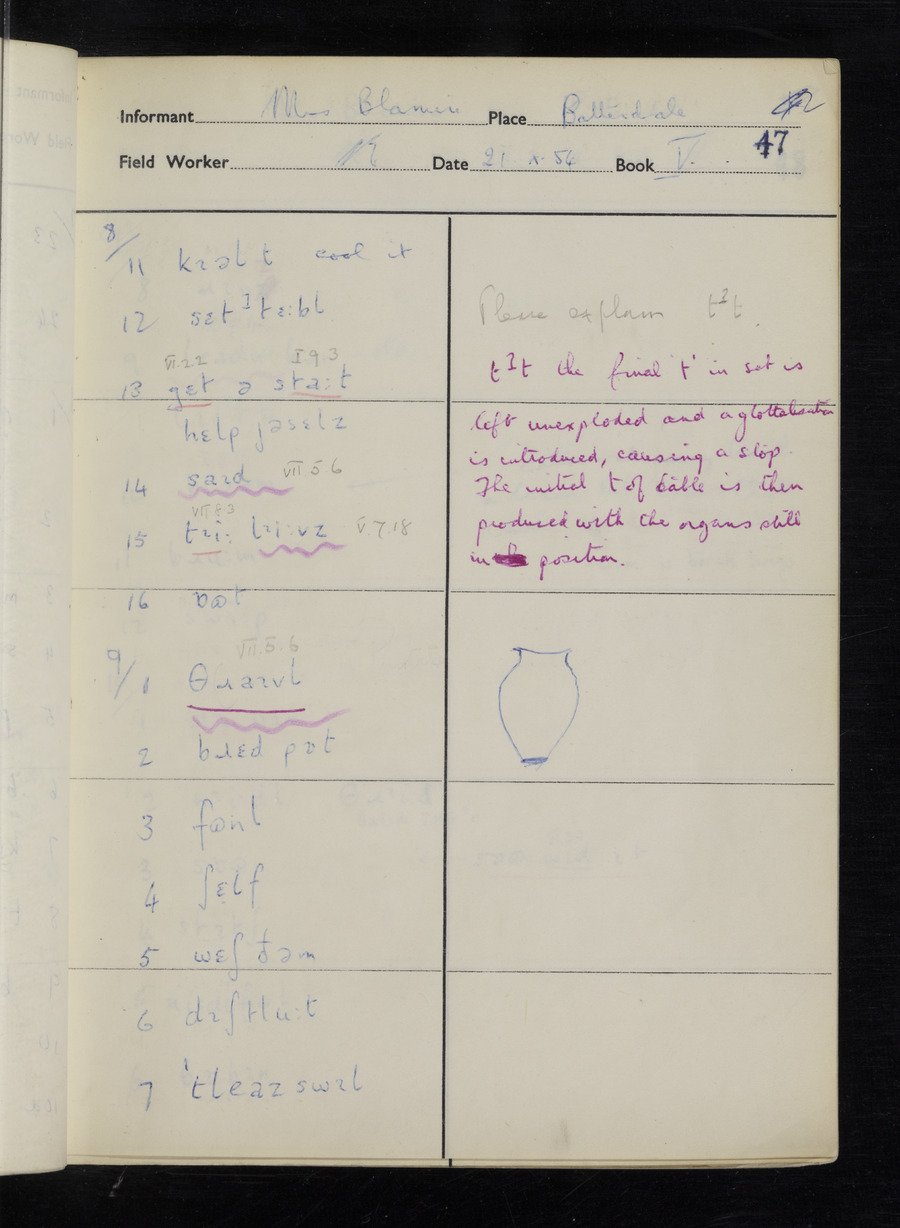 Informant Mrs Blamire Place Patterdale
47
Field Worker Date 21. x. 54 Book V.
8/11 kɪəl t cool it
12 sɛtˀtɛ:bl
VI.2.2 I 9.3
13 gɛt ə sta:t
help jəsɛlz
14 saɪd VII.5.6
VII.8.3
15 tɹi: li:vz V.7.18
16 ɒɷt
VII.5.6
9/1 θɹaɪvl
2 bɹɛd pɒt
3 fɷnl
4 ʃɛlf
5 wɛʃ ðəm
6 dɪʃtlu:t
7 ˈtleaz swɪl
Please explain tˀt.
tˀt the final 't' in set is
left unexploded and a glottalisation
is introduced, causing a stop.
The initial t of table is then
produced with the organs still
in position.